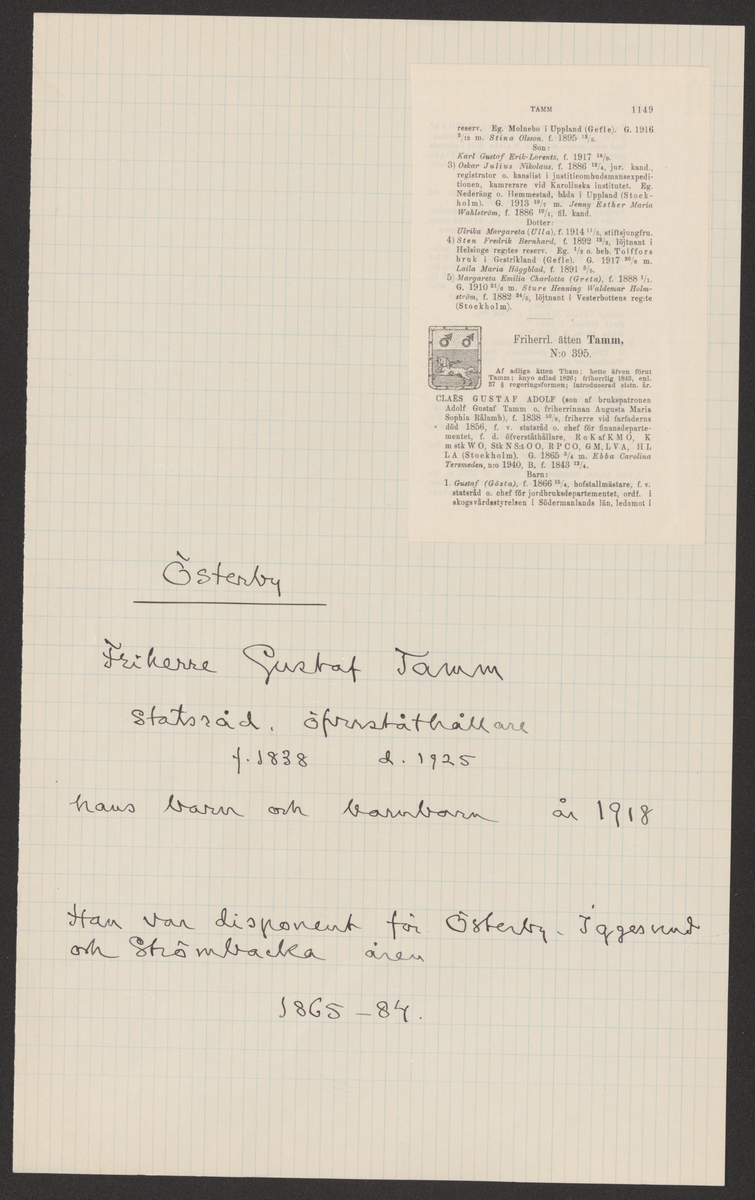 TAMM 1149
reserv. Eg. Molnebo i Uppland (Gefle). G. 1916
m. Stina Olsson, f. 1895
Son:
Karl Gustof Erik-Lorentz, f. 1917
3) Oskar Julius Nikolaus, f. 1886 jur. kand.,
registrator o. kanslist i justitieombudsmansexpedi-
tionen, kamrerare vid Karolinska institutet. Eg.
Nederäng o. Hemmestad, båda i Uppland (Stock-
holm). G. 1913 m. Jenny Esther Maria
Wahlström, f. 1886 fil. kand.
Dotter:
Ulrika Margareta (Ulla), f. 1914 stiftsjungfru.
4) Sten Fredrik Bernhard, f. 1892 löjtnant i
Helsinge reg:tes reserv. Eg. 1/2 o. beb. Tolffors
bruk i Gestrikland (Gefle). G. 1917 m.
Laila Maria Häggblad, f. 1891
5) Margareta Emilia Charlotta (Greta), f. 1888
G. 1910 m. Sture Henning Waldemar Holm-
ström, f. 1882 löjtnant i Vesterbottens reg:te
(Stockholm).
Friherrl. ätten Tamm,
N:o 395.
Af adliga ätten Tham; hette äfven förut
Tamm; ånyo adlad 1826; friherrlig 1843, enl.
37 § regeringsformen; introducerad sistn. år.
CLAËS GUSTAF ADOLF (son af brukspatronen
Adolf Gustaf Tamm o. friherrinnan Augusta Maria
Sophia Rålamb), f. 1838 friherre vid farfaderns
död 1856, f. v. statsråd o. chef för finansdeparte-
mentet, f. d. öfverståthållare, RoKafKMO, K
m stk WO, StkNS:tOO, RPCO, GM, LVA, HL
LA (Stockholm). G. 1865 m. Ebba Carolina
Tersmeden, n:o 1940, B, f. 1843
Barn:
1. Gustaf (Gösta), f. 1866 hofstallmästare, f. v.
statsråd o. chef för jordbruksdepartementet, ordf. i
skogsvårdsstyrelsen i Södermanlands län, ledamot i
Österby
Friherre Gustaf Tamm
statsråd. öfverståthållare
f. 1838 d. 1925
hans barn och barnbarn år 1918
Han var disponent för Österby - Iggesund
och Strömbacka åren
1865 - 84.